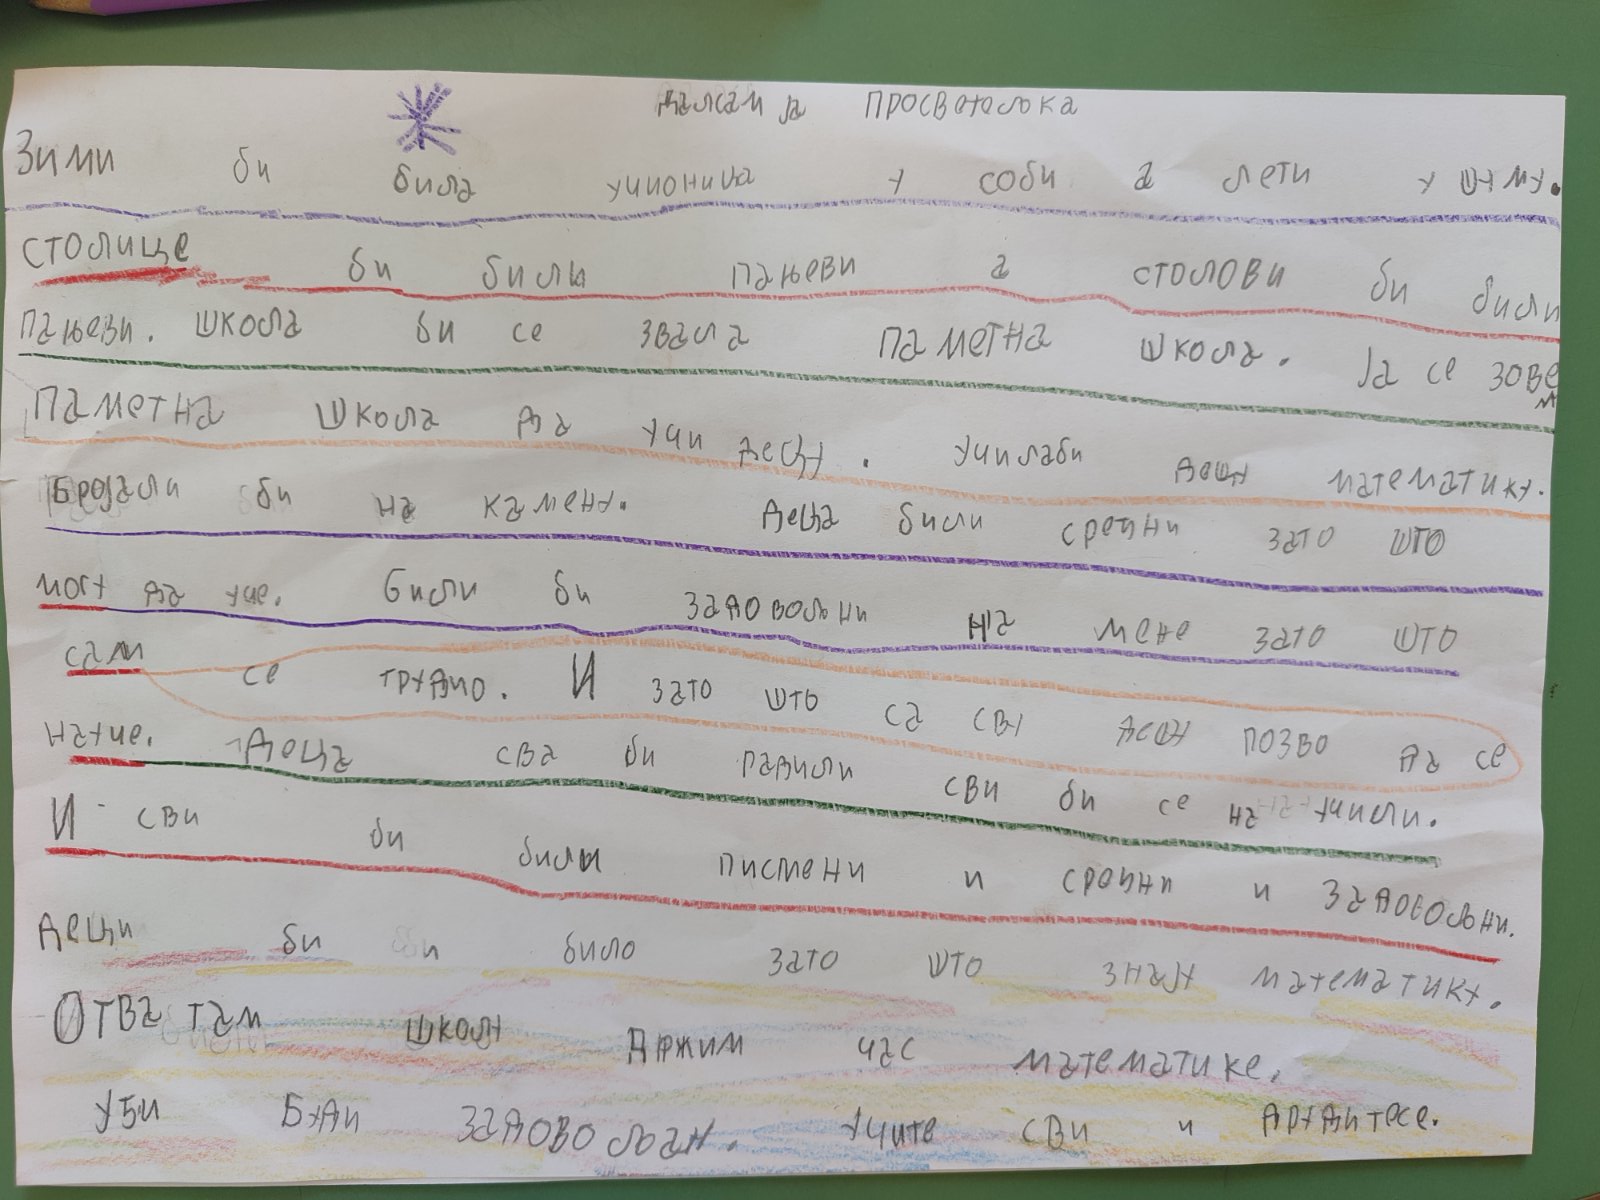 Да сам ја просветељка
Зими би била учионица у соби а лети у шуму.
столице би били пањеви а столови би били
пањеви. школа би се звала паметна школа. Ја се зовем
Паметна школа да учи децу. Училаби децу математику.
Бројали би на камену. деца били срећни зато што
могу да уче. били би задовољни на мене зато што
сам се трудио. И зато што са сву децу позво да се
науче. деца сва би радили сви би се научили.
И сви би били писмени и срећни и задовољни.
деци би било зато што знају математику.
Отва там школу држим час математике.
Уби Буди задовољан. Учите сви и друдитесе.